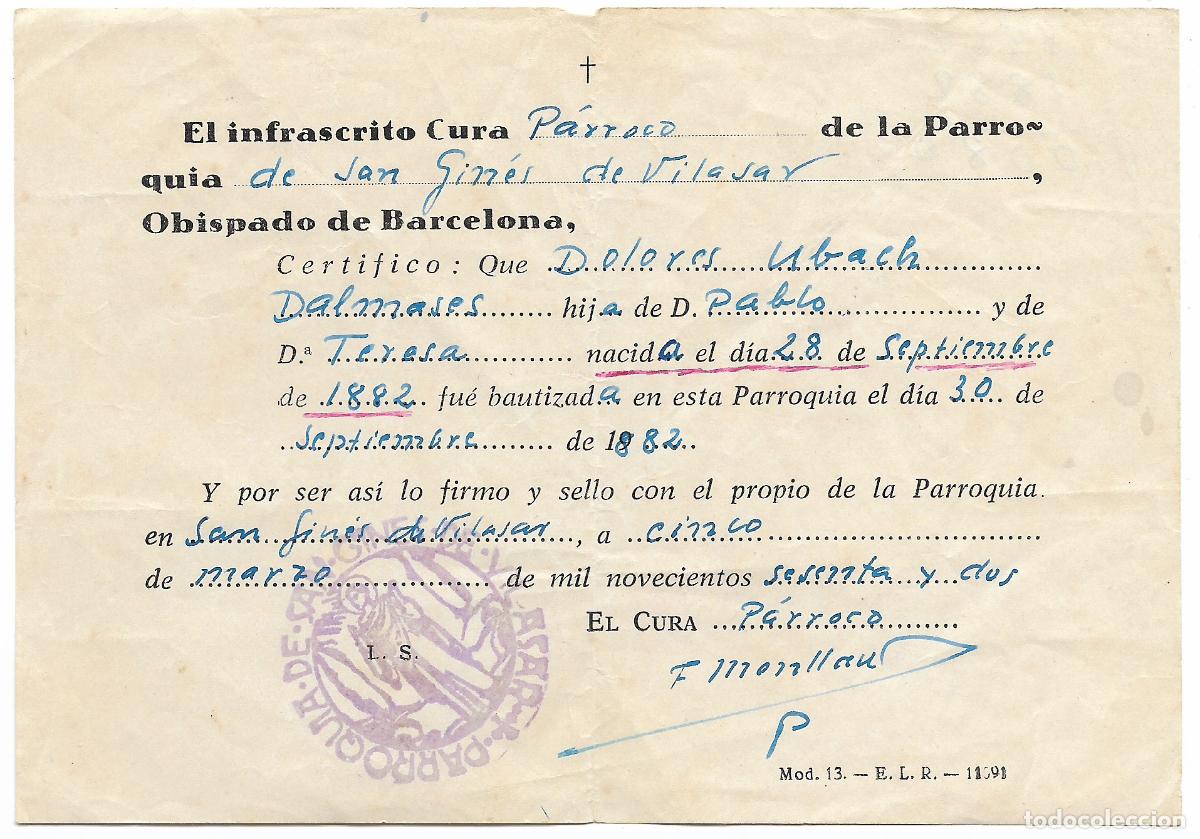 †
El infrascrito Cura Párroco de la Parro~
quia de San Ginés de Vilasar,
Obispado de Barcelona,
Certifico: Que Dolores Ubach
Dalmases hija de D. Pablo y de
D.ª Teresa nacida el día 28 de Septiembre
de 1882 fué bautizada en esta Parroquia el día 30 de
Septiembre de 1882
Y por ser así lo firmo y sello con el propio de la Parroquia.
en San Ginés de Vilasar, a cinco
de marzo de mil novecientos sesenta y dos
EL CURA Párroco
L. S.
F Monllau
P
PARROQUIA·DE·SAN·GINES·DE·VILASAR
Mod. 13. — E. L. R. —
todocoleccion